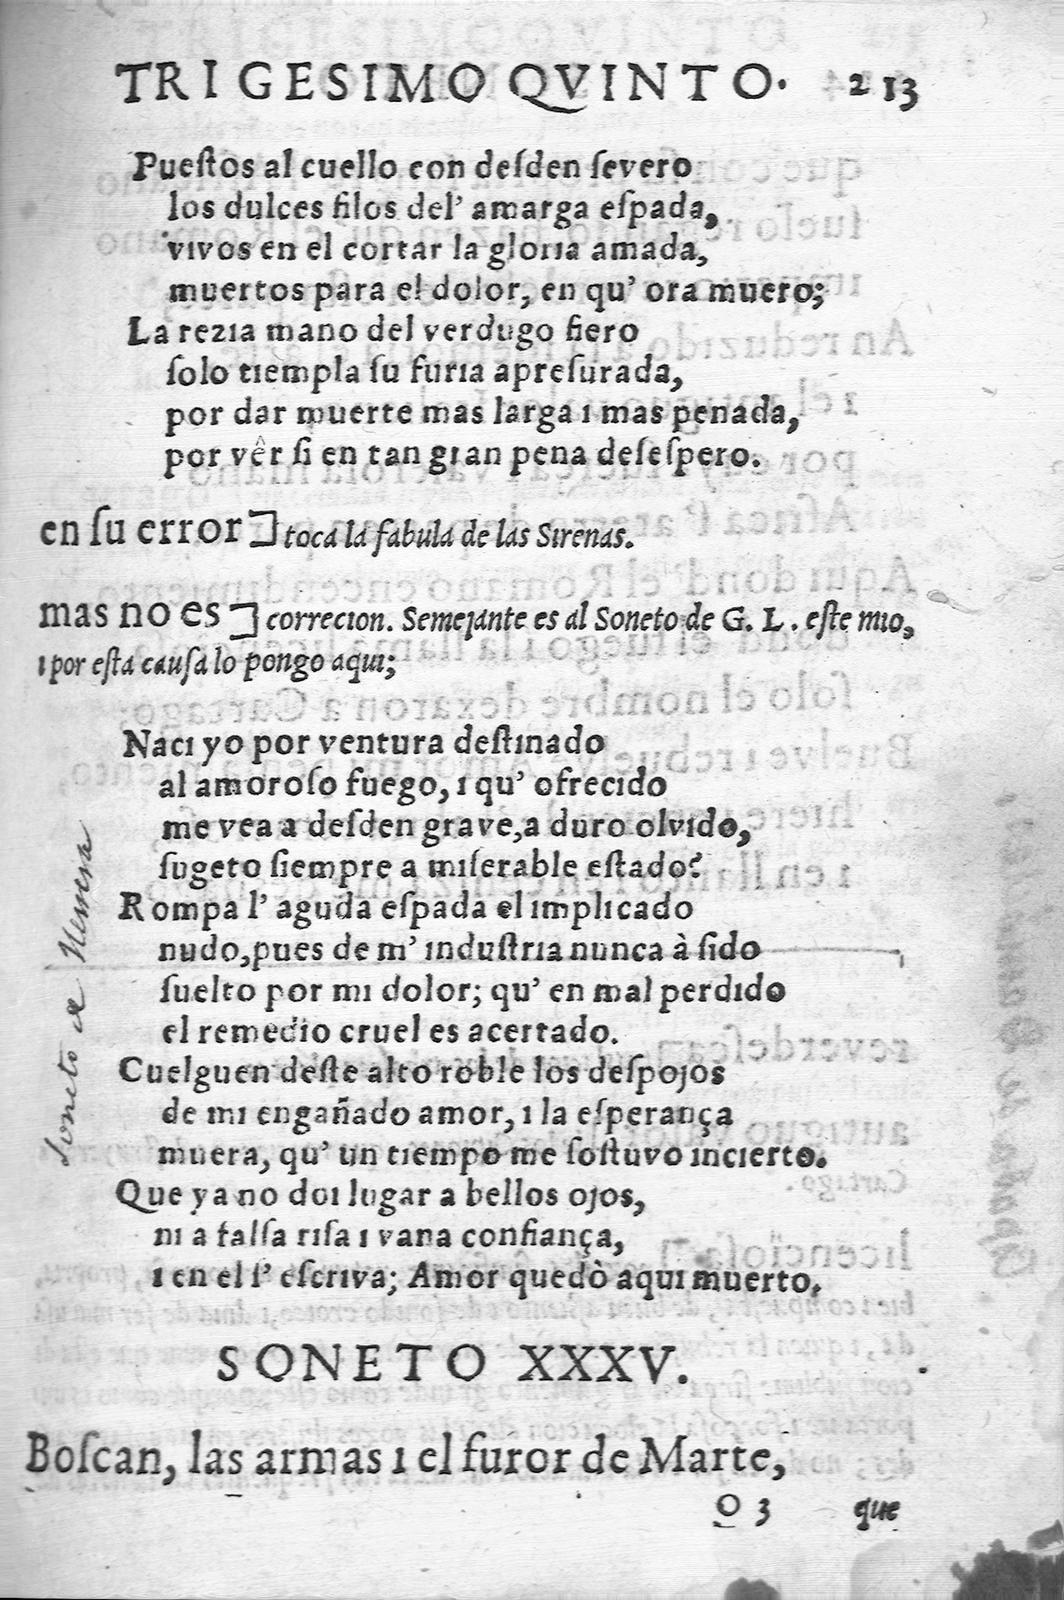 TRIGESIMO QVINTO. 213
Pueſtos al cuello con deſden ſevero
los dulces filos del' amarga eſpada,
vivos en el cortar la gloria amada,
muertos para el dolor, en qu' ora muero;
La rezia mano del verdugo fiero
ſolo tiempla ſu furia apreſurada,
por dar muerte mas larga i mas penada,
por vêr ſi en tan gran pena deſeſpero.
en ſu error ] toca la fabula de las Sirenas.
mas no es ] correcion. Semejante es al Soneto de G. L. eſte mio,
i por eſta cauſa lo pongo aqui;
Naci yo por ventura deſtinado
al amoroſo fuego, i qu' ofrecido
me vea a deſden grave, a duro olvido,
ſugeto ſiempre a miſerable eſtado?
Rompa l' aguda eſpada el implicado
nudo, pues de m' induſtria nunca à ſido
ſuelto por mi dolor; qu' en mal perdido
el remedio cruel es acertado.
Cuelguen deſte alto roble los deſpojos
de mi engañado amor, i la eſperança
muera, qu' un tiempo me ſoſtuvo incierto.
Que ya no doi lugar a bellos ojos,
ni a falſa riſa i vana confiança,
i en el ſ' eſcriva; Amor quedò aqui muerto.
Soneto de Herrera
SONETO XXXV.
Boſcan, las armas i el furor de Marte,
O 3 que